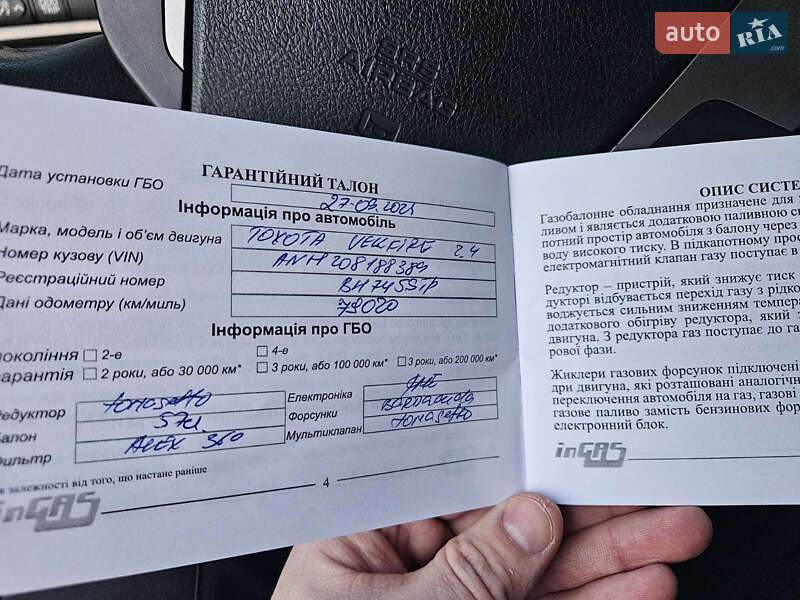 auto RIA.com
SRS AIRBAG
Дата установки ГБО
ГАРАНТІЙНИЙ ТАЛОН
27-09.2021
Інформація про автомобіль
Марка, модель і об'єм двигуна TOYOTA VELFIRE 2,4
Номер кузову (VIN) ANH208188384
Реєстраційний номер
Дані одометру (км/миль) 79020
Інформація про ГБО
покоління 2-е 4-е
гарантія 2 роки, або 30 000 км* 3 роки, або 100 000 км* 3 роки, або 200 000 км*
Редуктор tomasetto
Балон 57л
Фильтр ALEX 360
Електроніка
Форсунки Barracuda
Мультиклапан tomasetto
в залежності від того, що настане раніше
inGAS
4
ОПИС СИСТЕ
Газобалонне обладнання призначене для
ливом і являється додатковою паливною си
потний простір автомобіля з балону через
воду високого тиску. В підкапотному прос
електромагнітний клапан газу поступає в
Редуктор – пристрій, який знижує тиск
дукторі відбувається перехід газу з рідко
воджується сильним зниженням темпера
додаткового обігріву редуктора, який з
двигуна. З редуктора газ поступає до га
рової фази.
Жиклери газових форсунок підключені
дри двигуна, які розташовані аналогічн
переключення автомобіля на газ, газові
газове паливо замість бензинових фор
електронний блок.
inGAS